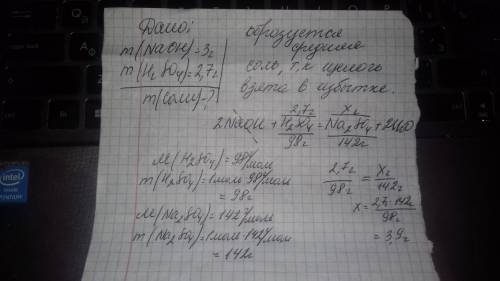 Дано:
m(NaOH)=3г
m(H2SO4)=2,7г
m(соли)-?
образуется
средняя
соль, т.к щелочь
взята в избытке.
2,7г X г
2NaOH + H2SO4 = Na2SO4 + 2H2O
98г 142г
M(H2SO4)=98г/моль
m(H2SO4)=1моль·98г/моль
=98г
M(Na2SO4)=142г/моль
m(Na2SO4)=1моль·142г/моль
=142г
2,7г/98г = Xг/142г
X=2,7г·142г/98г
=3,9г
intel
PENTIUM